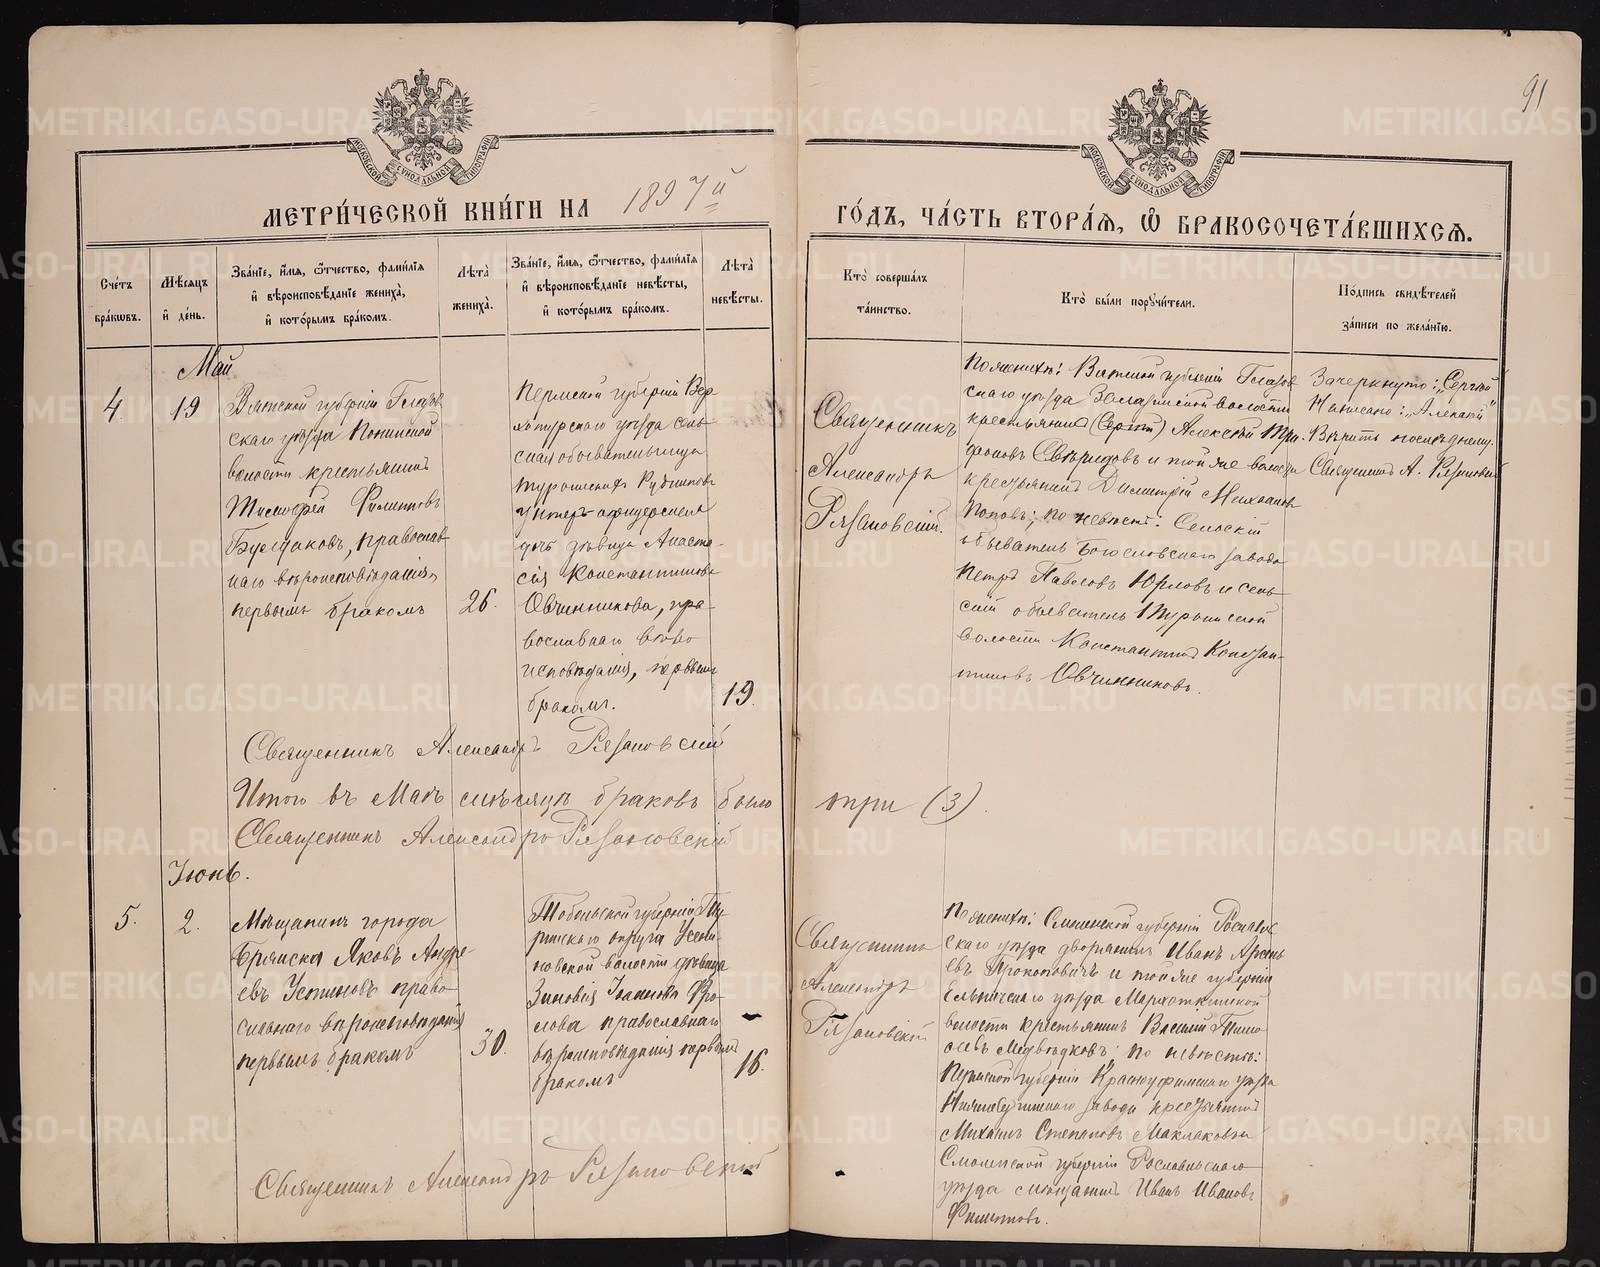 91
МЕТРИ́ЧЕСКОЙ КНИ́ГИ НА 1897й
ГО́ДЪ, ЧА́СТЬ ВТОРА́Я, Ѽ БРАКОСОЧЕТА́ВШИХСЯ.
Сче́тъ бра́кѡвъ.
Мѣ́сяцъ и҆ де́нь.
Зва́нїе, и҆́мя, ѻ҆́тчество, фами́лїя
и҆ вѣроисповѣ́данїе жениха̀,
и҆ кото́рымъ бра́комъ.
Лѣ́та̀ жениха̀.
Зва́нїе, и҆́мя, ѻ҆́тчество, фами́лїя
и҆ вѣроисповѣ́данїе невѣ́сты,
и҆ кото́рымъ бра́комъ.
Лѣ́та̀ невѣ́сты.
Кто̀ соверша́лъ та́инство.
Кто̀ бы́ли пор̾чи́тели.
По́дпись свидѣ́телей
за́писи по жела́нїю.
Май
4
19
Вятской губерніи Глазов
скаго уѣзда Понинской
волости крестьянинъ
Тимофей Филиповъ
Булдаковъ, православ
наго вѣроисповѣданія,
первымъ бракомъ
26.
Пермской губерніи Вер
хотурскаго уѣзда сель
ская обывательница
Турьинскихъ Рудниковъ
унтеръ-офицерская
дочь дѣвица Анаста-
сія Константинова
Овчинникова, пра-
вославнаго вѣро
исповѣданія, первымъ
бракомъ.
19.
Священникъ
Александръ
Рязановскій.
По женихѣ: Вятской губерніи Глазов
скаго уѣзда волости
крестьянинъ (Сергій) Алексѣй Три-
фоновъ Свѣридовъ и той же волости
крестьянинъ Димитрій Михаиловъ
Поповъ; по невѣстѣ: Сельскій
обыватель Богословскаго завода
Петръ Павловъ Юрловъ и сель-
скій обыватель Турьинской
волости Константинъ Констан-
тиновъ Овчинниковъ.
Зачеркнуто: „Сергій"
Написано: „Алексѣй"
Вѣрить послѣднему.
Священникъ А. Рязановскій
Священникъ Александръ Рязановскій
Итого въ Маѣ мѣсяцѣ браковъ было три (3).
Священникъ Александръ Рязановскій
Іюнь.
5.
2.
Мѣщанинъ города
Брянска Яковъ Андре
евъ Устиновъ право
славнаго вѣроисповѣданія
первымъ бракомъ
30.
Тобольской губерніи Ту-
ринскаго округа Усени-
новской волости дѣвица
Зиновія Іоаннова Фро-
лова православнаго
вѣроисповѣданія первымъ
бракомъ
16.
Священникъ
Александръ
Рязановскій
По женихѣ: Смоленской губерніи Рославль
скаго уѣзда дворянинъ Иванъ Арсень
евъ Прокоповичъ и той же губерніи
Ельнинскаго уѣзда
волости крестьянинъ Василій Тимо
ѳеевъ Медвѣдковъ; по невѣстѣ:
Пермской губерніи Красноуфимскаго уѣзда
завода крестьянинъ
Михаилъ Степановъ Маклаковъ и
Смоленской губерніи Рославльскаго
уѣзда мѣщанинъ Иванъ Ивановъ
Филиповъ.
Священникъ Александръ Рязановскій
METRIKI.GASO-URAL.RU